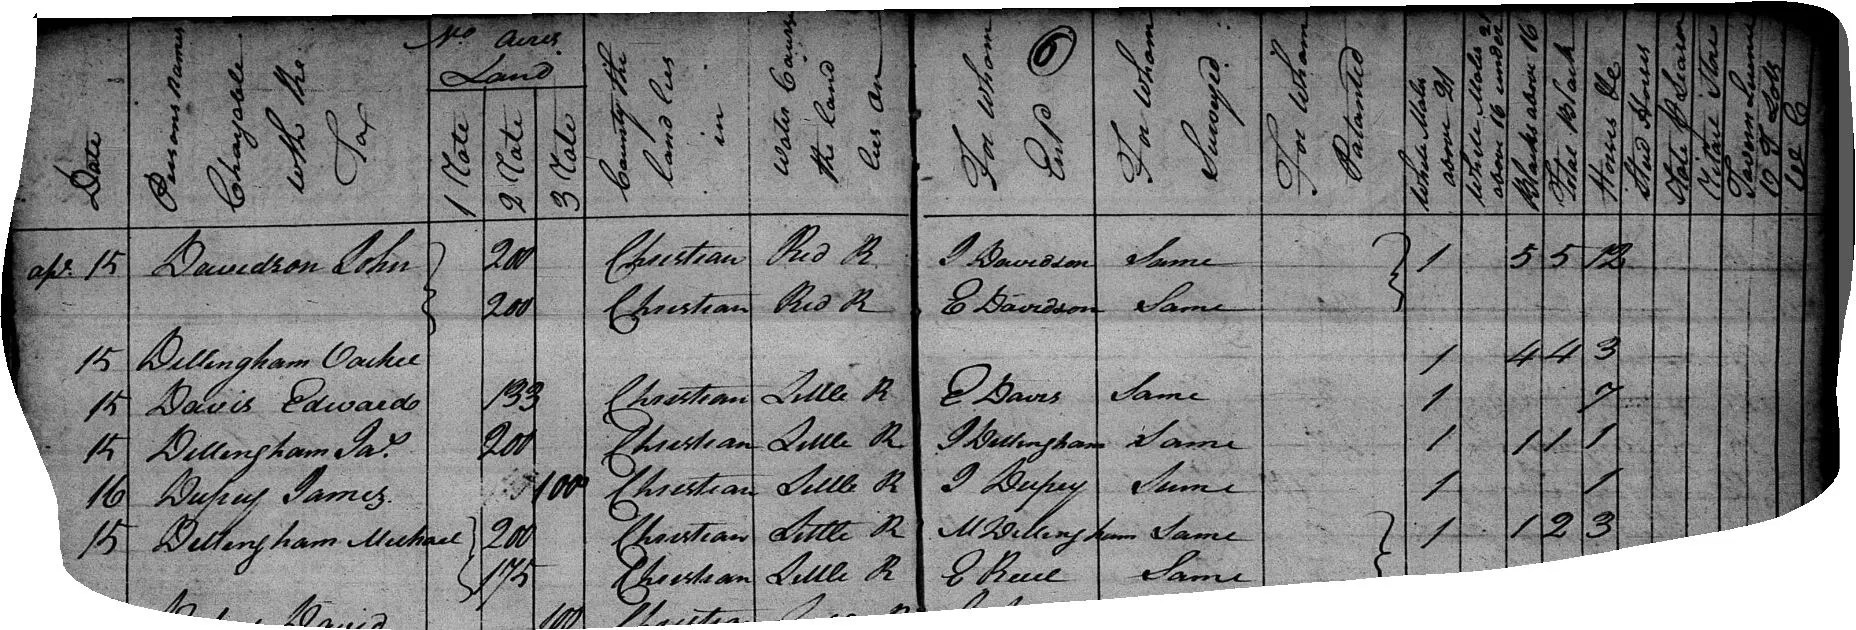 Date
Persons names Chargable with the Tax
No acres Land
1 Rate
2 Rate
3 Rate
County the land lies in
Water Course the land lies on
For Whom Ent
6
For Whom Surveyed
For Whom Patanted
White Males above 21
White Males above 16 under 21
Blacks above 16
Total Black
Horses &c
Stud Horses
Retail Store
Tavern
Lots
apr. 15 Davidson John 200 Christian Red R J Davidson Same 1 5 5 12
200 Christian Red R E Davidson Same
15 Dillingham 1 4 4 3
15 Davis Edward 133 Christian Little R E Davis Same 1 7
15 Dillingham Jas. 200 Christian Little R J Dillingham Same 1 1 1 1
16 Dupuy James 100 Christian Little R J Dupuy Same 1 1
15 Dillingham Michael 200 Christian Little R M Dillingham Same 1 1 2 3
175 Christian Little R E Same
David 100 Christian